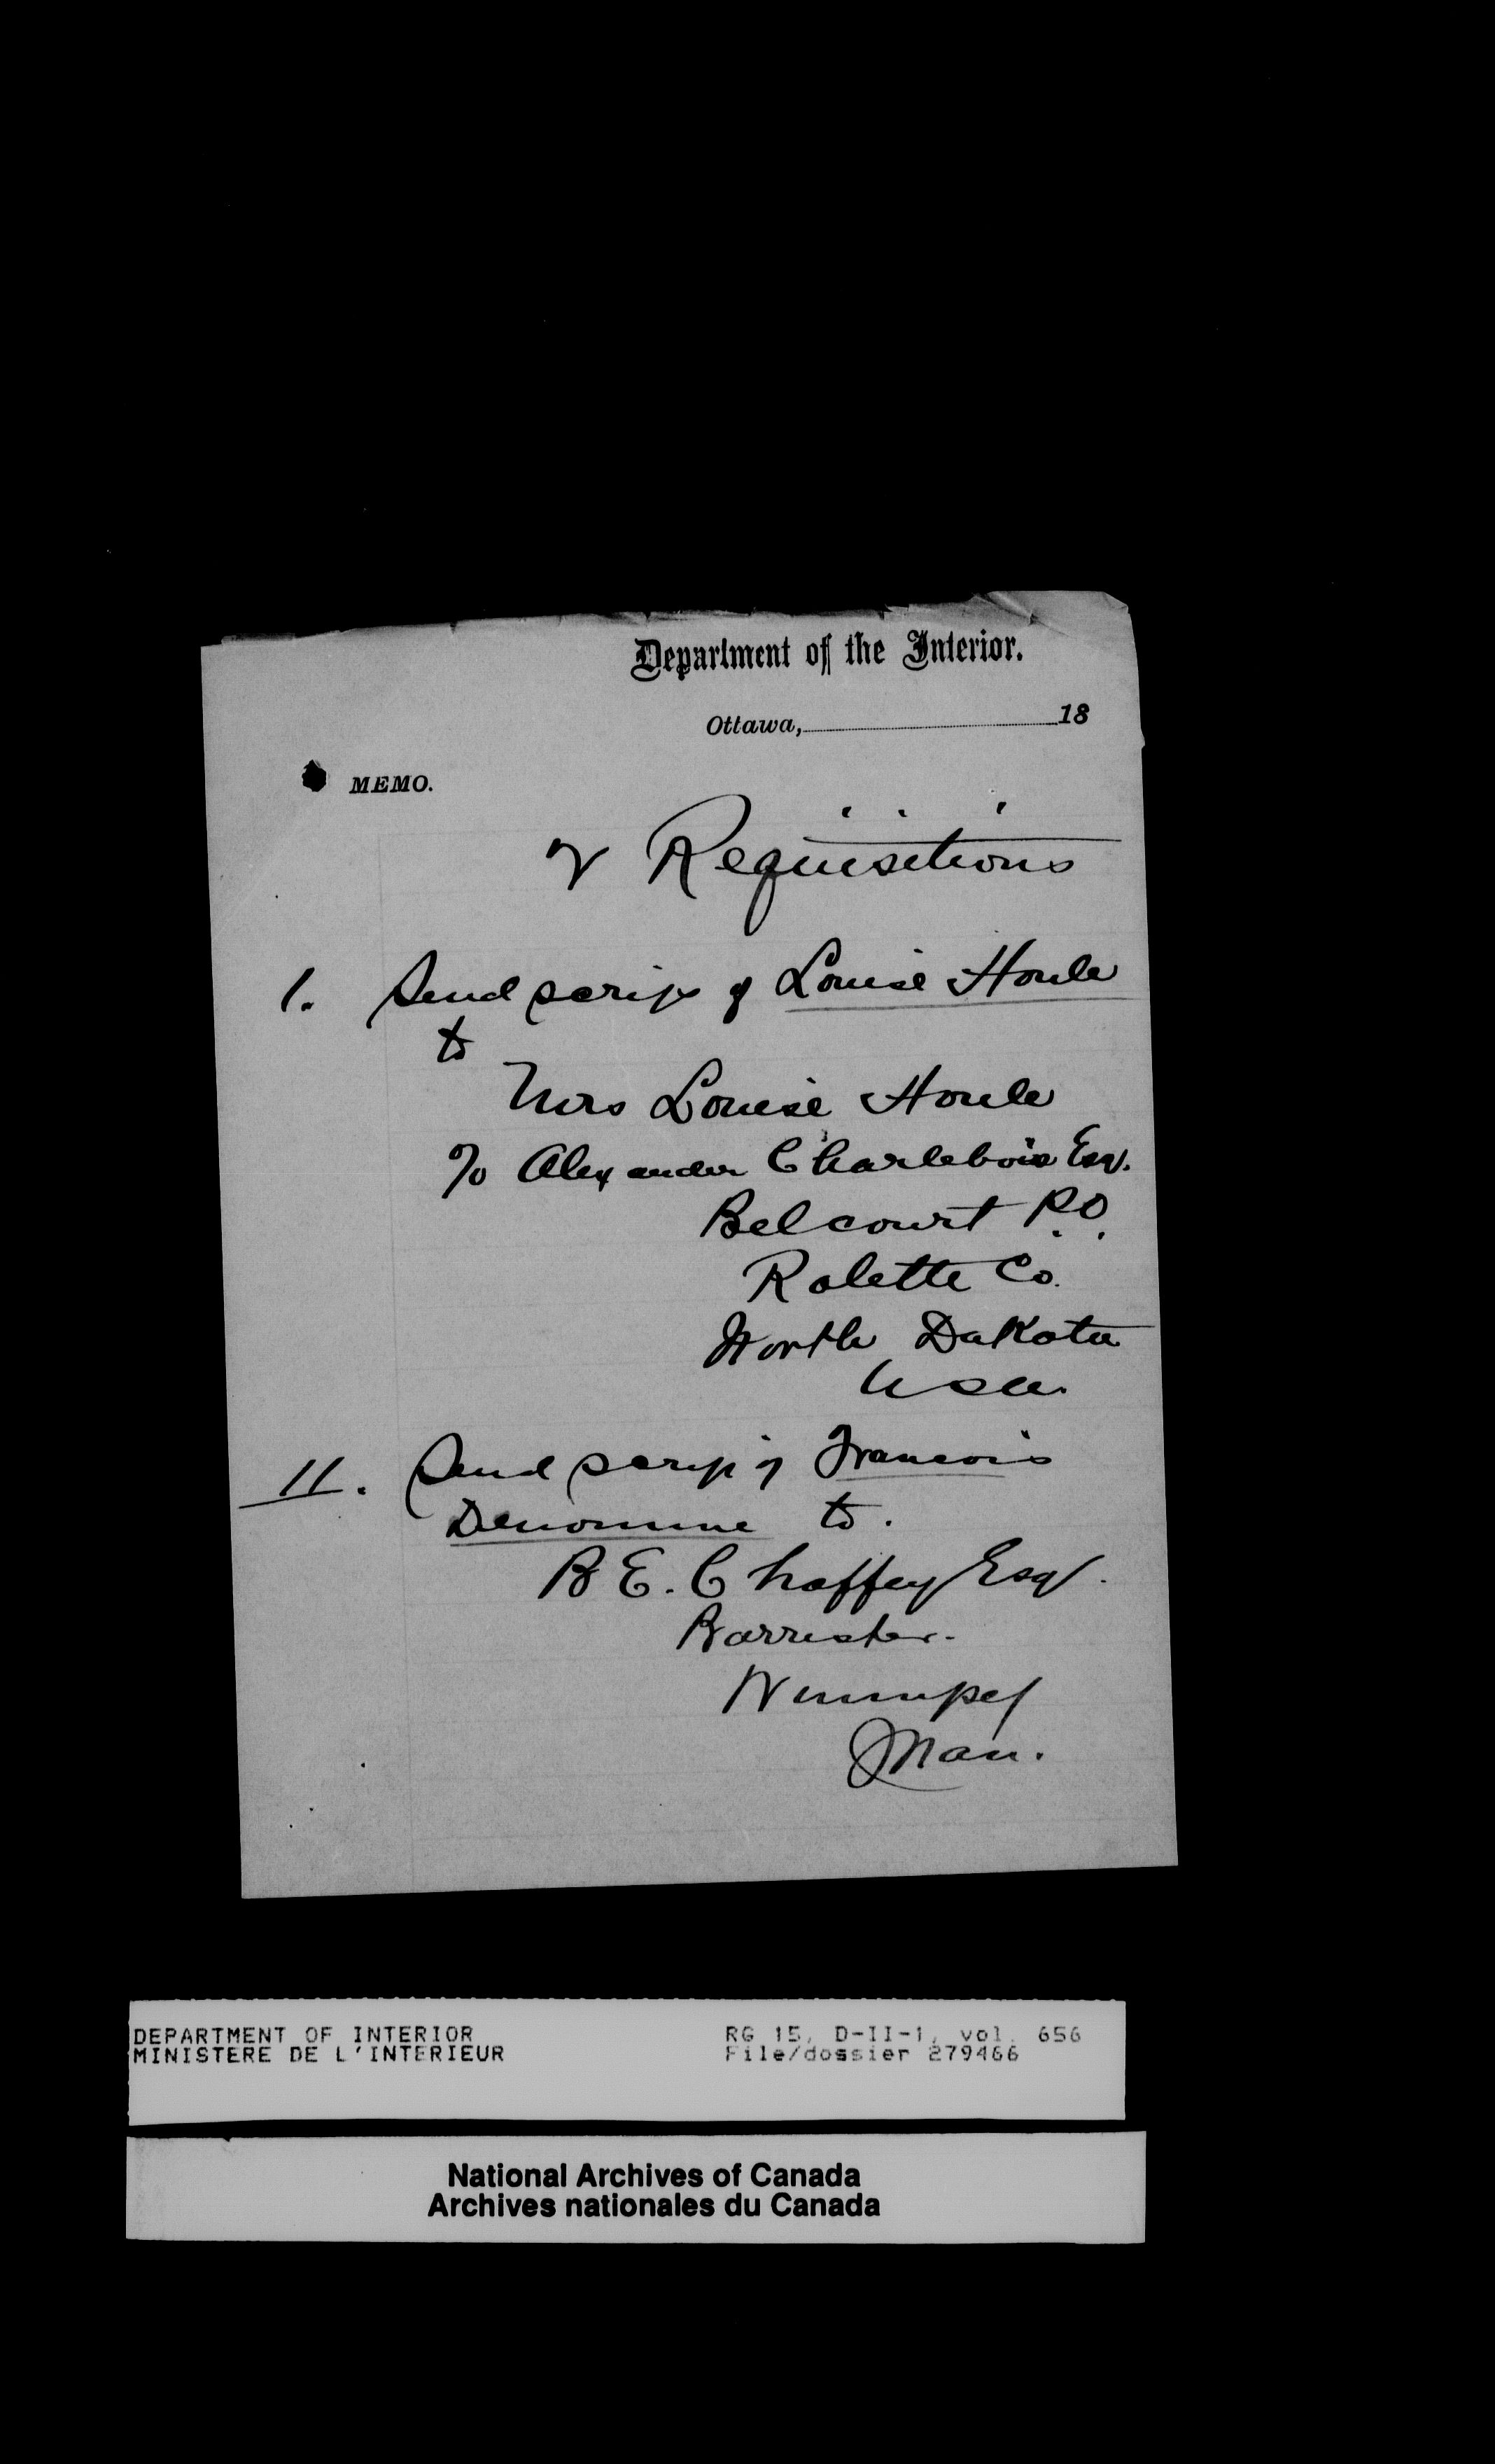 Department of the Interior.
Ottawa, 18
MEMO.
Requisitions
1. Send scrip of Louise Houle
to
Mrs Louise Houle
c/o Alexander Charlebois Esq.
Belcourt P.O.
Rolette Co.
North Dakota
USA.
11. Send scrip of Francois
Denomme to.
B E. Chaffey Esq.
Barrister.
Winnipeg
Man.
DEPARTMENT OF INTERIOR
MINISTERE DE L'INTERIEUR
RG 15, D-II-1, vol. 656
File/dossier 279466
National Archives of Canada
Archives nationales du Canada